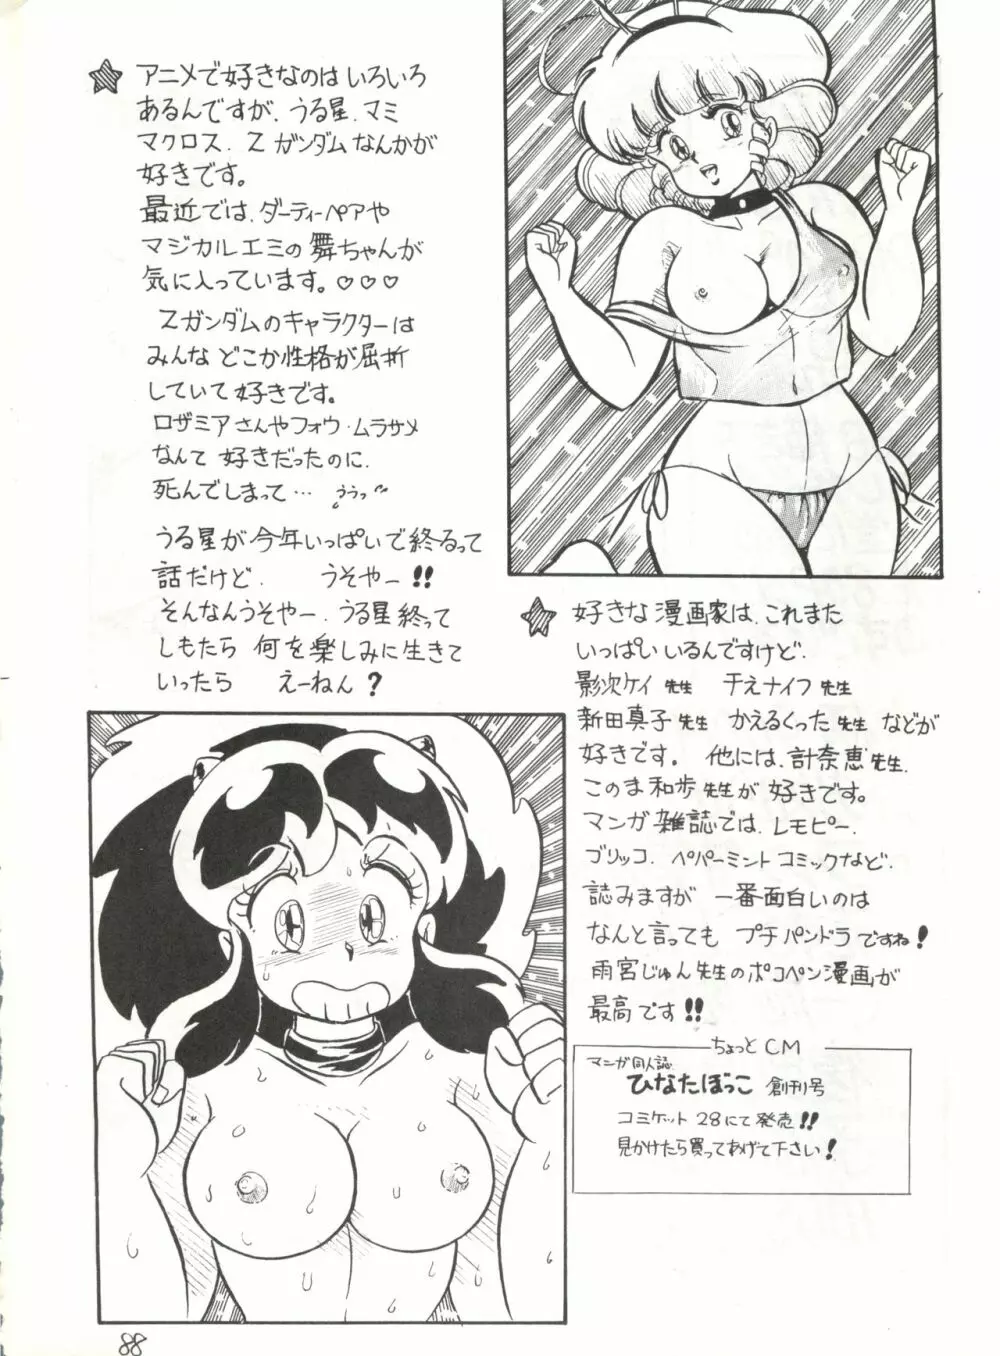 アニメで好きなのは いろいろ
あるんですが、うる星、マミ
マクロス、Z ガンダム なんかが
好きです。
最近では、ダーティーペアや
マジカル エミの 舞ちゃんが
気に入っています。♡♡♡
Zガンダムのキャラクターは
みんな どこか性格が屈折
していて 好きです。
ロザミア さんや フォウ・ムラサメ
なんて 好きだったのに、
死んでしまって… ううっ
うる星が 今年いっぱいで終るって
話だけど、 うそやー!!
そんなんうそやー、うる星 終って
しもたら 何を楽しみに生きて
いったら えーねん?
好きな 漫画家は、これまた
いっぱい いるんですけど、
影次ケイ 先生 千えナイフ 先生
新田真子 先生 かえるくった 先生 などが
好きです。 他には、計奈恵 先生、
このま和歩 先生が 好きです。
マンガ 雑誌では、レモピー、
ブリッコ、ペパーミント コミックなど、
読みますが 一番面白いのは
なんと言っても プチパンドラですね!
雨宮じゅん 先生のポコペン漫画が
最高です!!
ちょっと CM
マンガ同人誌
ひなたぼっこ 創刊号
コミケット 28にて発売!!
見かけたら買ってあげて下さい!
88